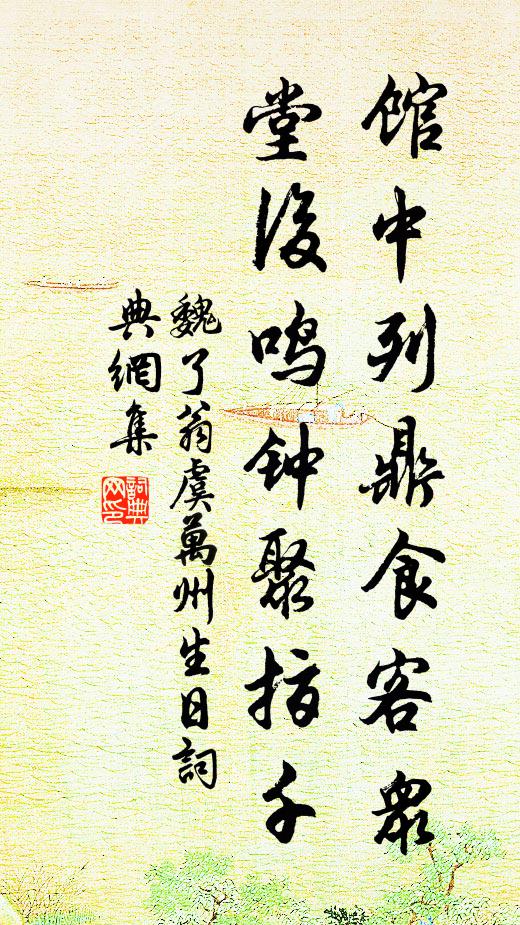 馆中列鼎食客眾
堂後鸣钟聚指千
魏了翁虞萬州生日詞
典網集
詞典网印